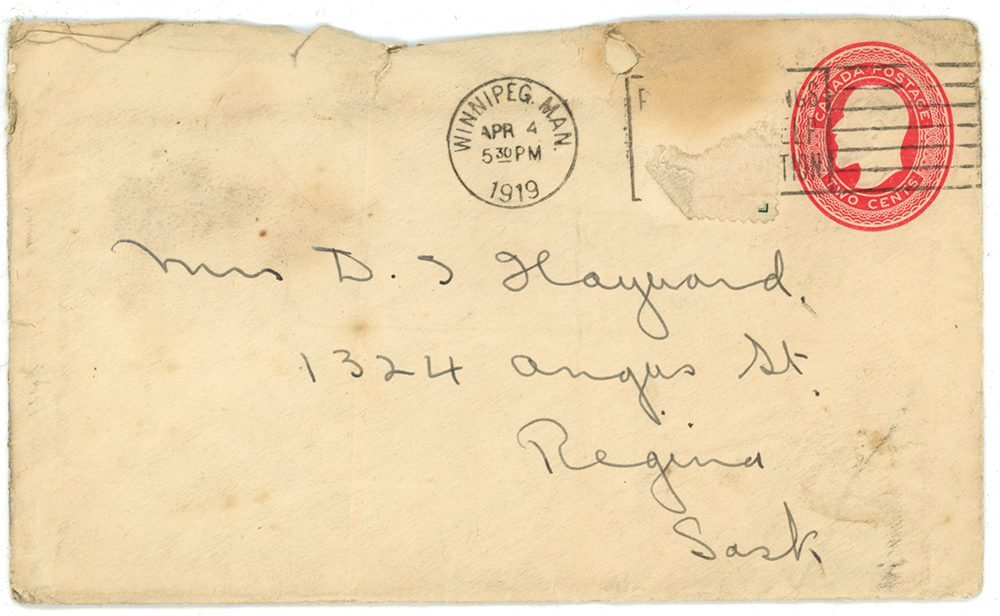 WINNIPEG, MAN.
APR 4
5 30 PM
1919
CANADA POSTAGE
TWO CENTS
Mrs D. S Hayward.
1324 Angus St.
Regina
Sask